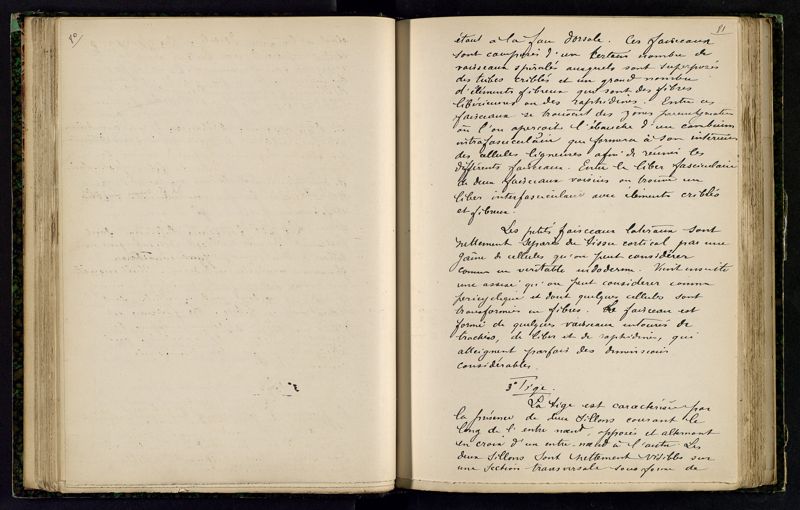 80
81
étant à la face dorsale. Ces faisceaux
sont composés d'un certain nombre de
vaisseaux spiralés auxquels sont superposés
des tubes criblés et un grand nombre
d'éléments fibreux qui sont des fibres
libériennes ou des raphidines. Entre ces
faisceaux se trouvent des zônes parenchymateuses
où l'on aperçoit l'ébauche d'un cambium
intrafasciculaire qui formera à son intérieur
des cellules ligneuses afin de réunir les
différents faisceaux. Entre le liber fasciculaire
de deux faisceaux voisins on trouve un
liber interfasciculaire avec éléments criblés
et fibreux.
Les petits faisceaux latéraux sont
nettement séparés du tissu cortical par une
gaîne de cellules qu'on peut considérer
comme un véritable endoderme. Vient ensuite
une assise qu'on peut considérer comme
péricyclique et dont quelques cellules sont
transformées en fibres. Le faisceau est
formé de quelques vaisseaux entourés de
trachées, de liber et de raphidines, qui
atteignent parfois des dimensions
considérables.
3° Tige.
La tige est caractérisée par
la présence de deux sillons courant le
long de l'entre nœud, opposés et alternant
en croix d'un entre-nœud à l'autre. Les
deux sillons sont nettement visibles sur
une section transversale sous forme de